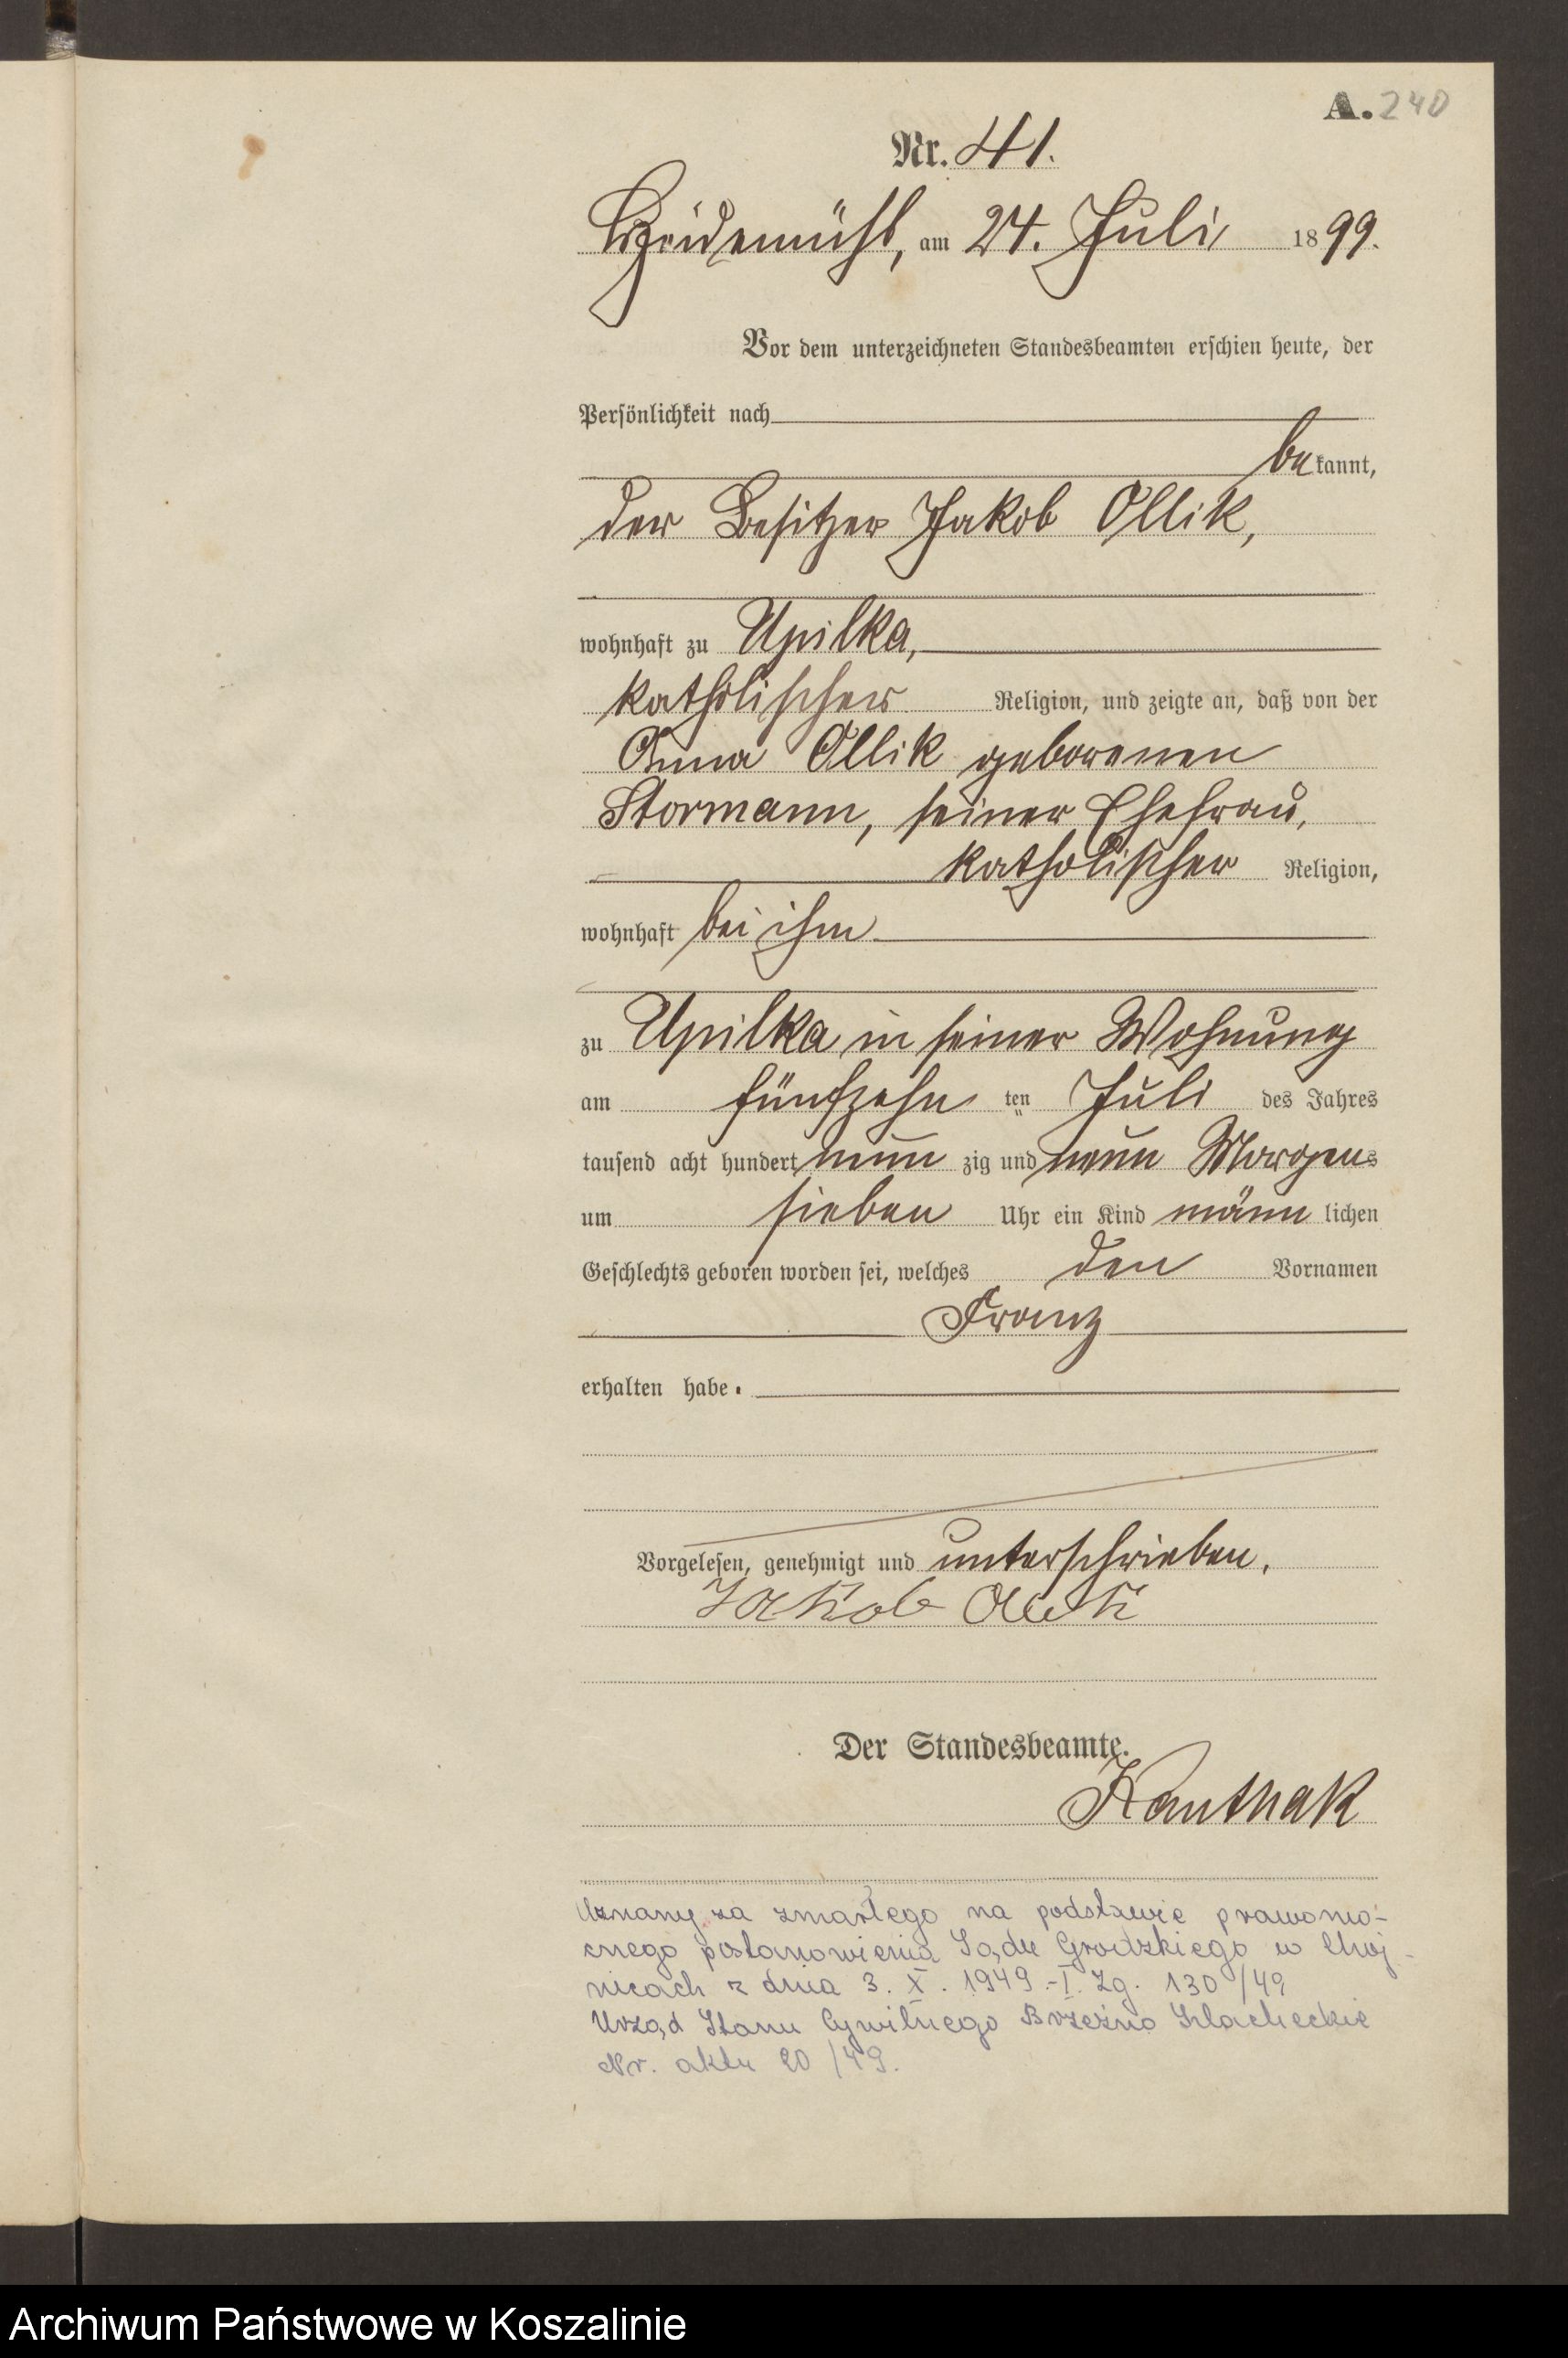 A. 240
Nr. 41.
Heidemühl, am 24. Juli 1899.
Vor dem unterzeichneten Standesbeamten erschien heute, der
Persönlichkeit nach
bekannt,
der Besitzer Jakob Ollik,
wohnhaft zu Upilka,
katholischer Religion, und zeigte an, daß von der
Anna Ollik geborenen
Stormann, seiner Ehefrau,
katholischer Religion,
wohnhaft bei ihm
zu Upilka in seiner Wohnung
am fünfzehn ten Juli des Jahres
tausend acht hundert neun zig und neun Morgens
um sieben Uhr ein Kind männ lichen
Geschlechts geboren worden sei, welches den Vornamen
Franz
erhalten habe.
Vorgelesen, genehmigt und unterschrieben.
Jakob Ollik
Der Standesbeamte.
Kanthak
Uznany za zmarłego na podstawie prawomo-
cnego postanowienia Sądu Grodzkiego w Choj-
nicach z dnia 3. X. 1949 - I. Zg. 130/49
Urząd Stanu Cywilnego Brzeźno Szlacheckie
Nr. aktu 20/49.
Archiwum Państwowe w Koszalinie